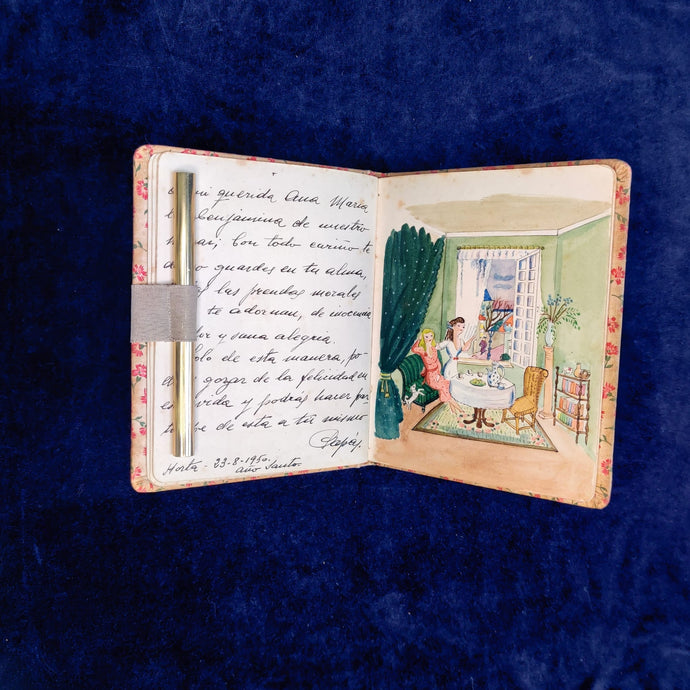 mi querida Ana Maria
benjamina de nuestro
Con todo cariño te
guardes en tu alma,
las prendas morales
te adornan, de inocencia
y sana alegria.
de esta manera, po-
gozar de la felicidad en
vida y podrás hacer par-
de esta a tu mismo
Papá.
Horta - 23-8-1950.
Año Santo.